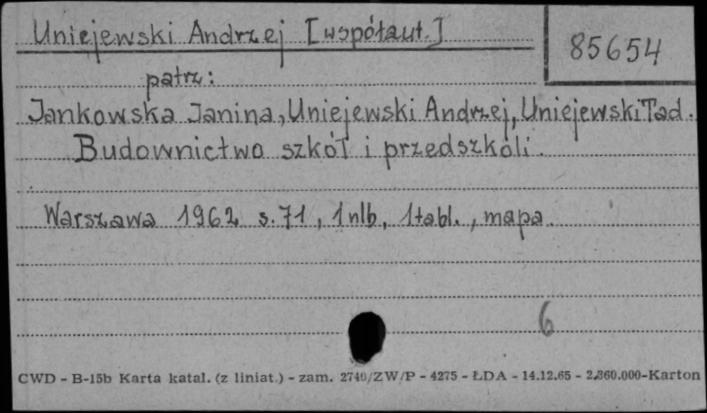 Uniejewski Andrzej [współaut.]
85654
patrz:
Jankowska Janina, Uniejewski Andrzej, Uniejewski Tad.
Budownictwo szkół i przedszkoli.
Warszawa 1962 s. 71, 1 nlb, 1 tabl., mapa.
6
CWD - B-15b Karta katal. (z liniat.) - zam. 2740/ZW/P - 4275 - ŁDA - 14.12.65 - 2.860.000-Karton